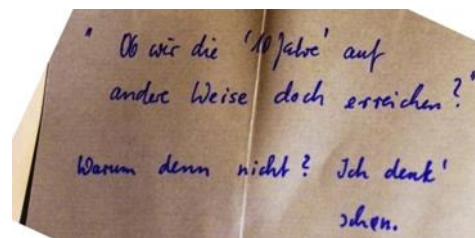 " Ob wir die '10 Jahre' auf
andere Weise doch erreichen? "
Warum denn nicht? Ich denk'
schon.